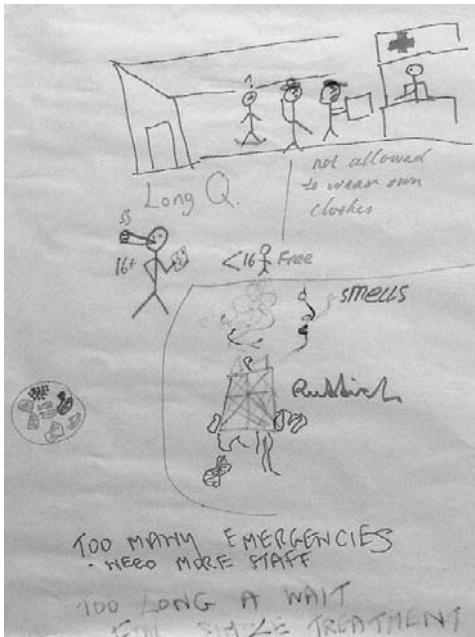 Long Q.
not allowed
to wear own
clothes
16+
<16 Free
smells
Rubbish
TOO MANY EMERGENCIES
- NEED MORE STAFF
TOO LONG A WAIT
TREATMENT